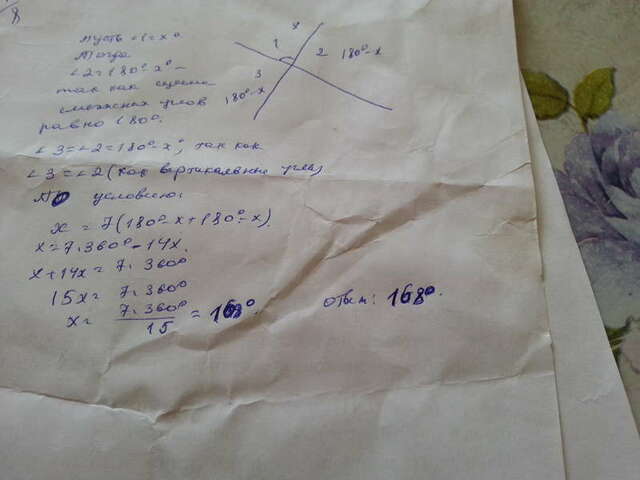 8
пусть ∠1=x°
Тогда
∠2=180°-x° -
так как сумма
смежных углов
равно 180°.
x
1
2 180°-x
3
180°-x
∠3=∠2=180°-x°, так как
∠3=∠2 (как вертикальные углы)
По условию:
x = 7(180°-x+180°-x).
x=7·360°-14x.
x+14x=7·360°
15x= 7·360°
x= 7·360°/15 = 168°.
ответ: 168°.